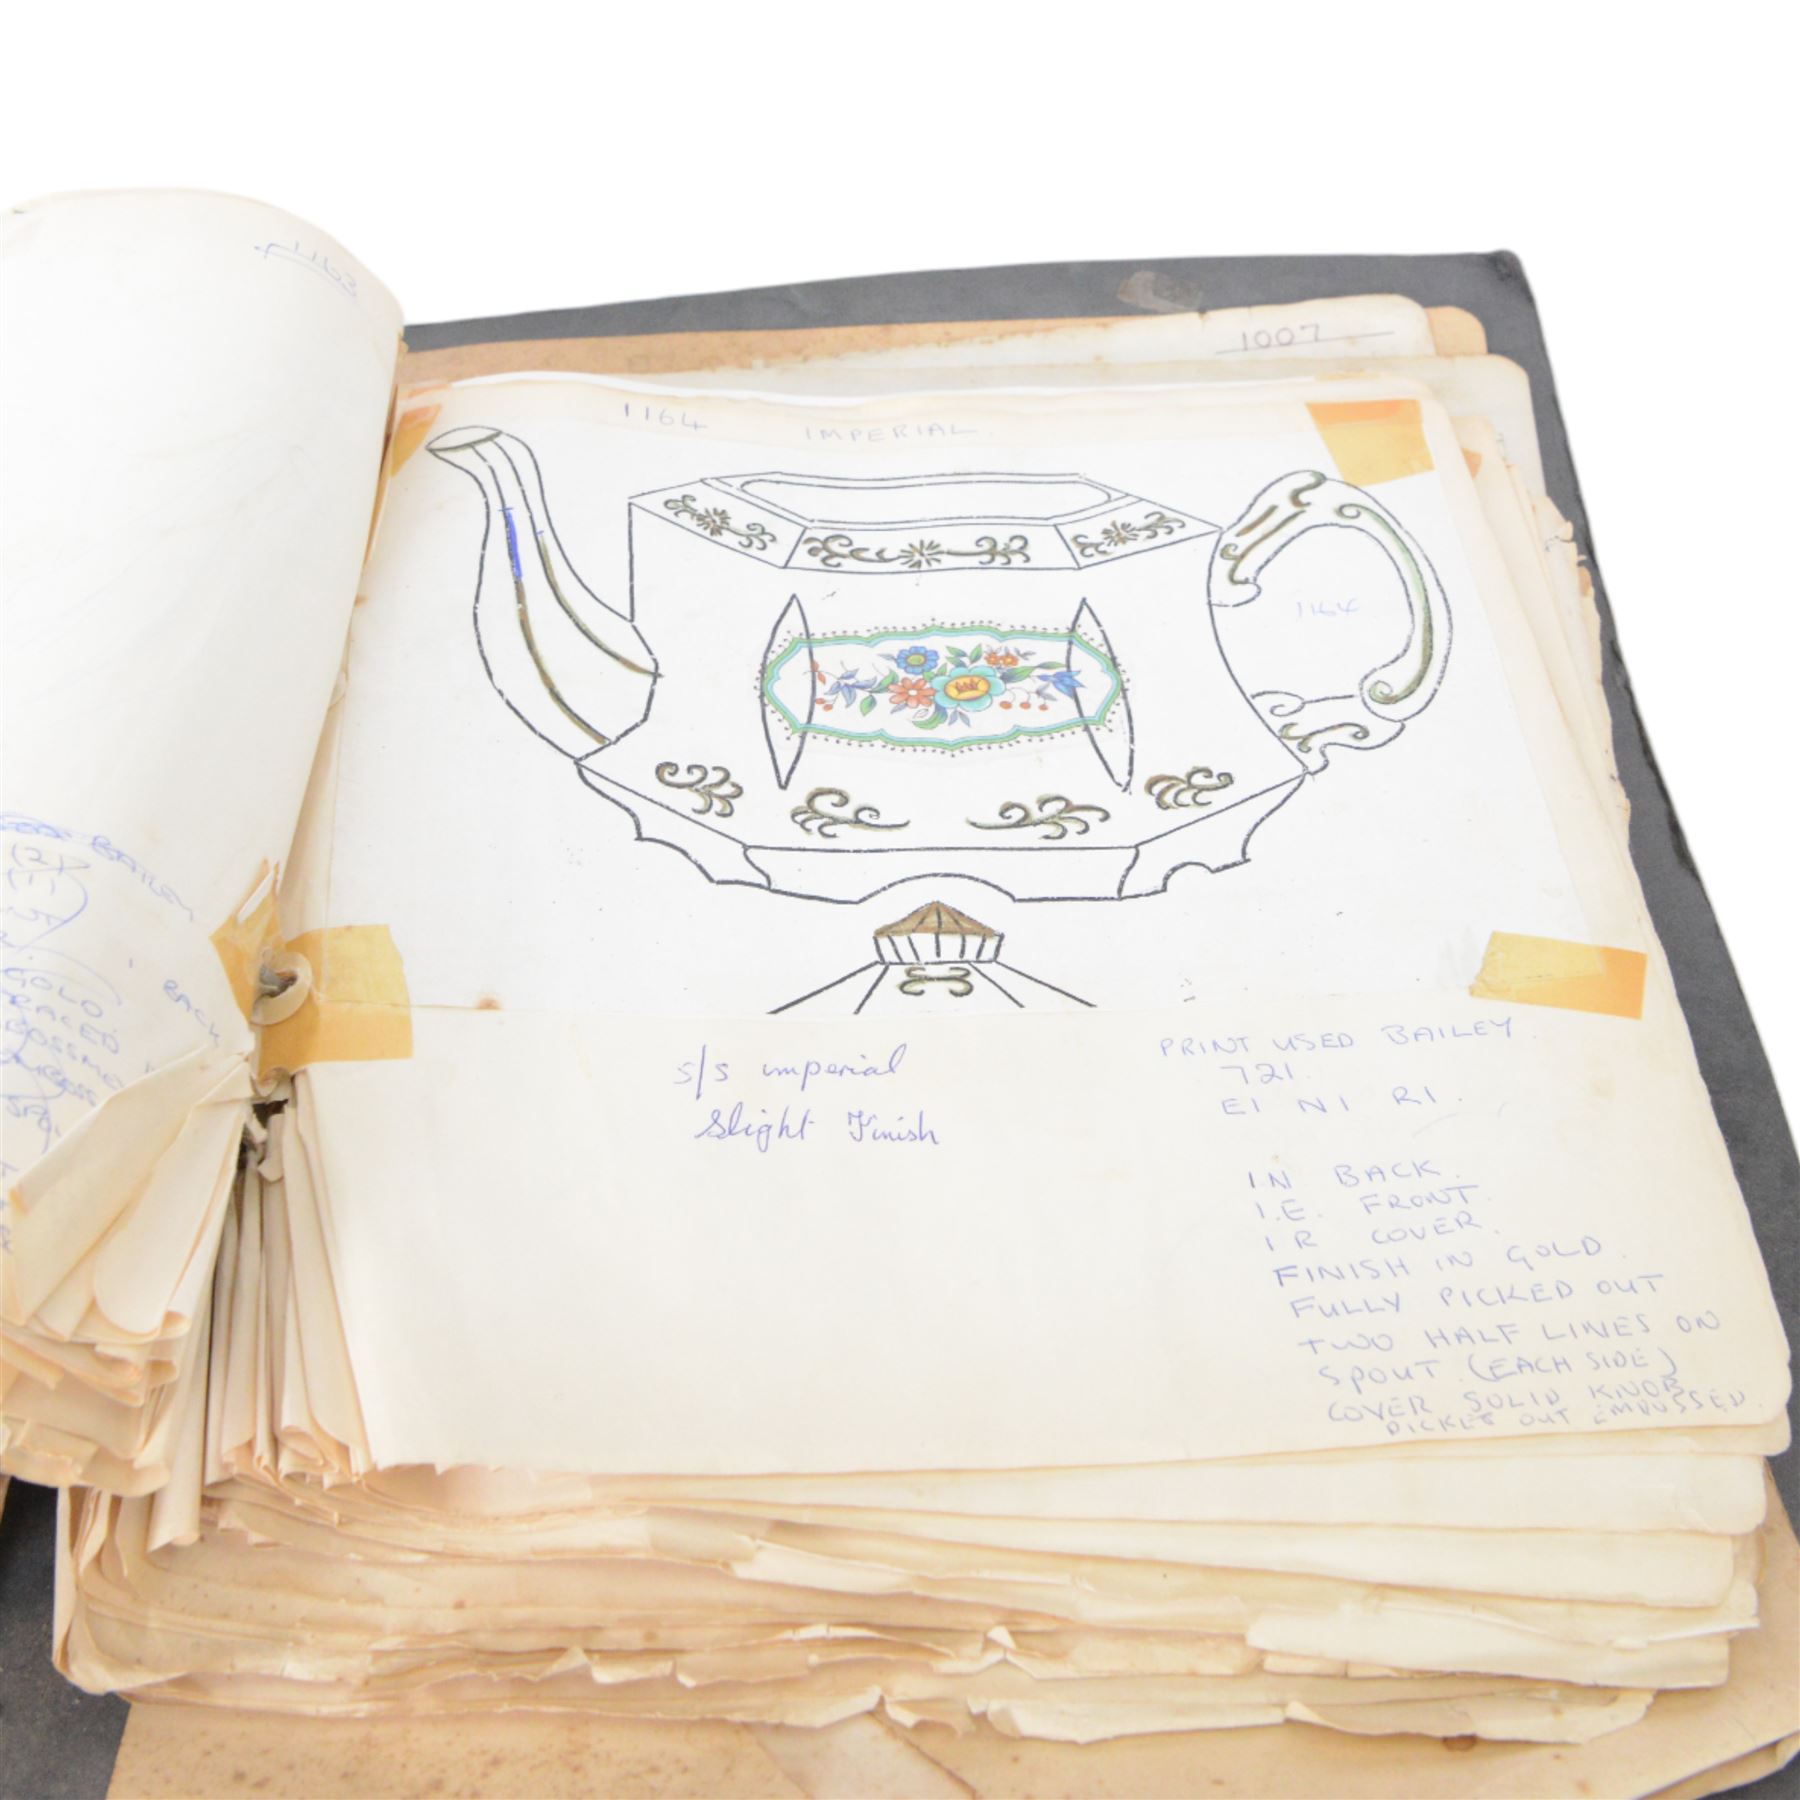 1163
1007
1164 IMPERIAL
1164
BAILEY
BACK
GOLD
s/s imperial
Slight Finish
PRINT USED BAILEY.
721.
E1 N1 R1.
1.N BACK.
1.E. FRONT.
1 R COVER.
FINISH IN GOLD.
FULLY PICKED OUT
TWO HALF LINES ON
SPOUT. (EACH SIDE)
COVER SOLID KNOB
PICKET OUT EMBOSSED.